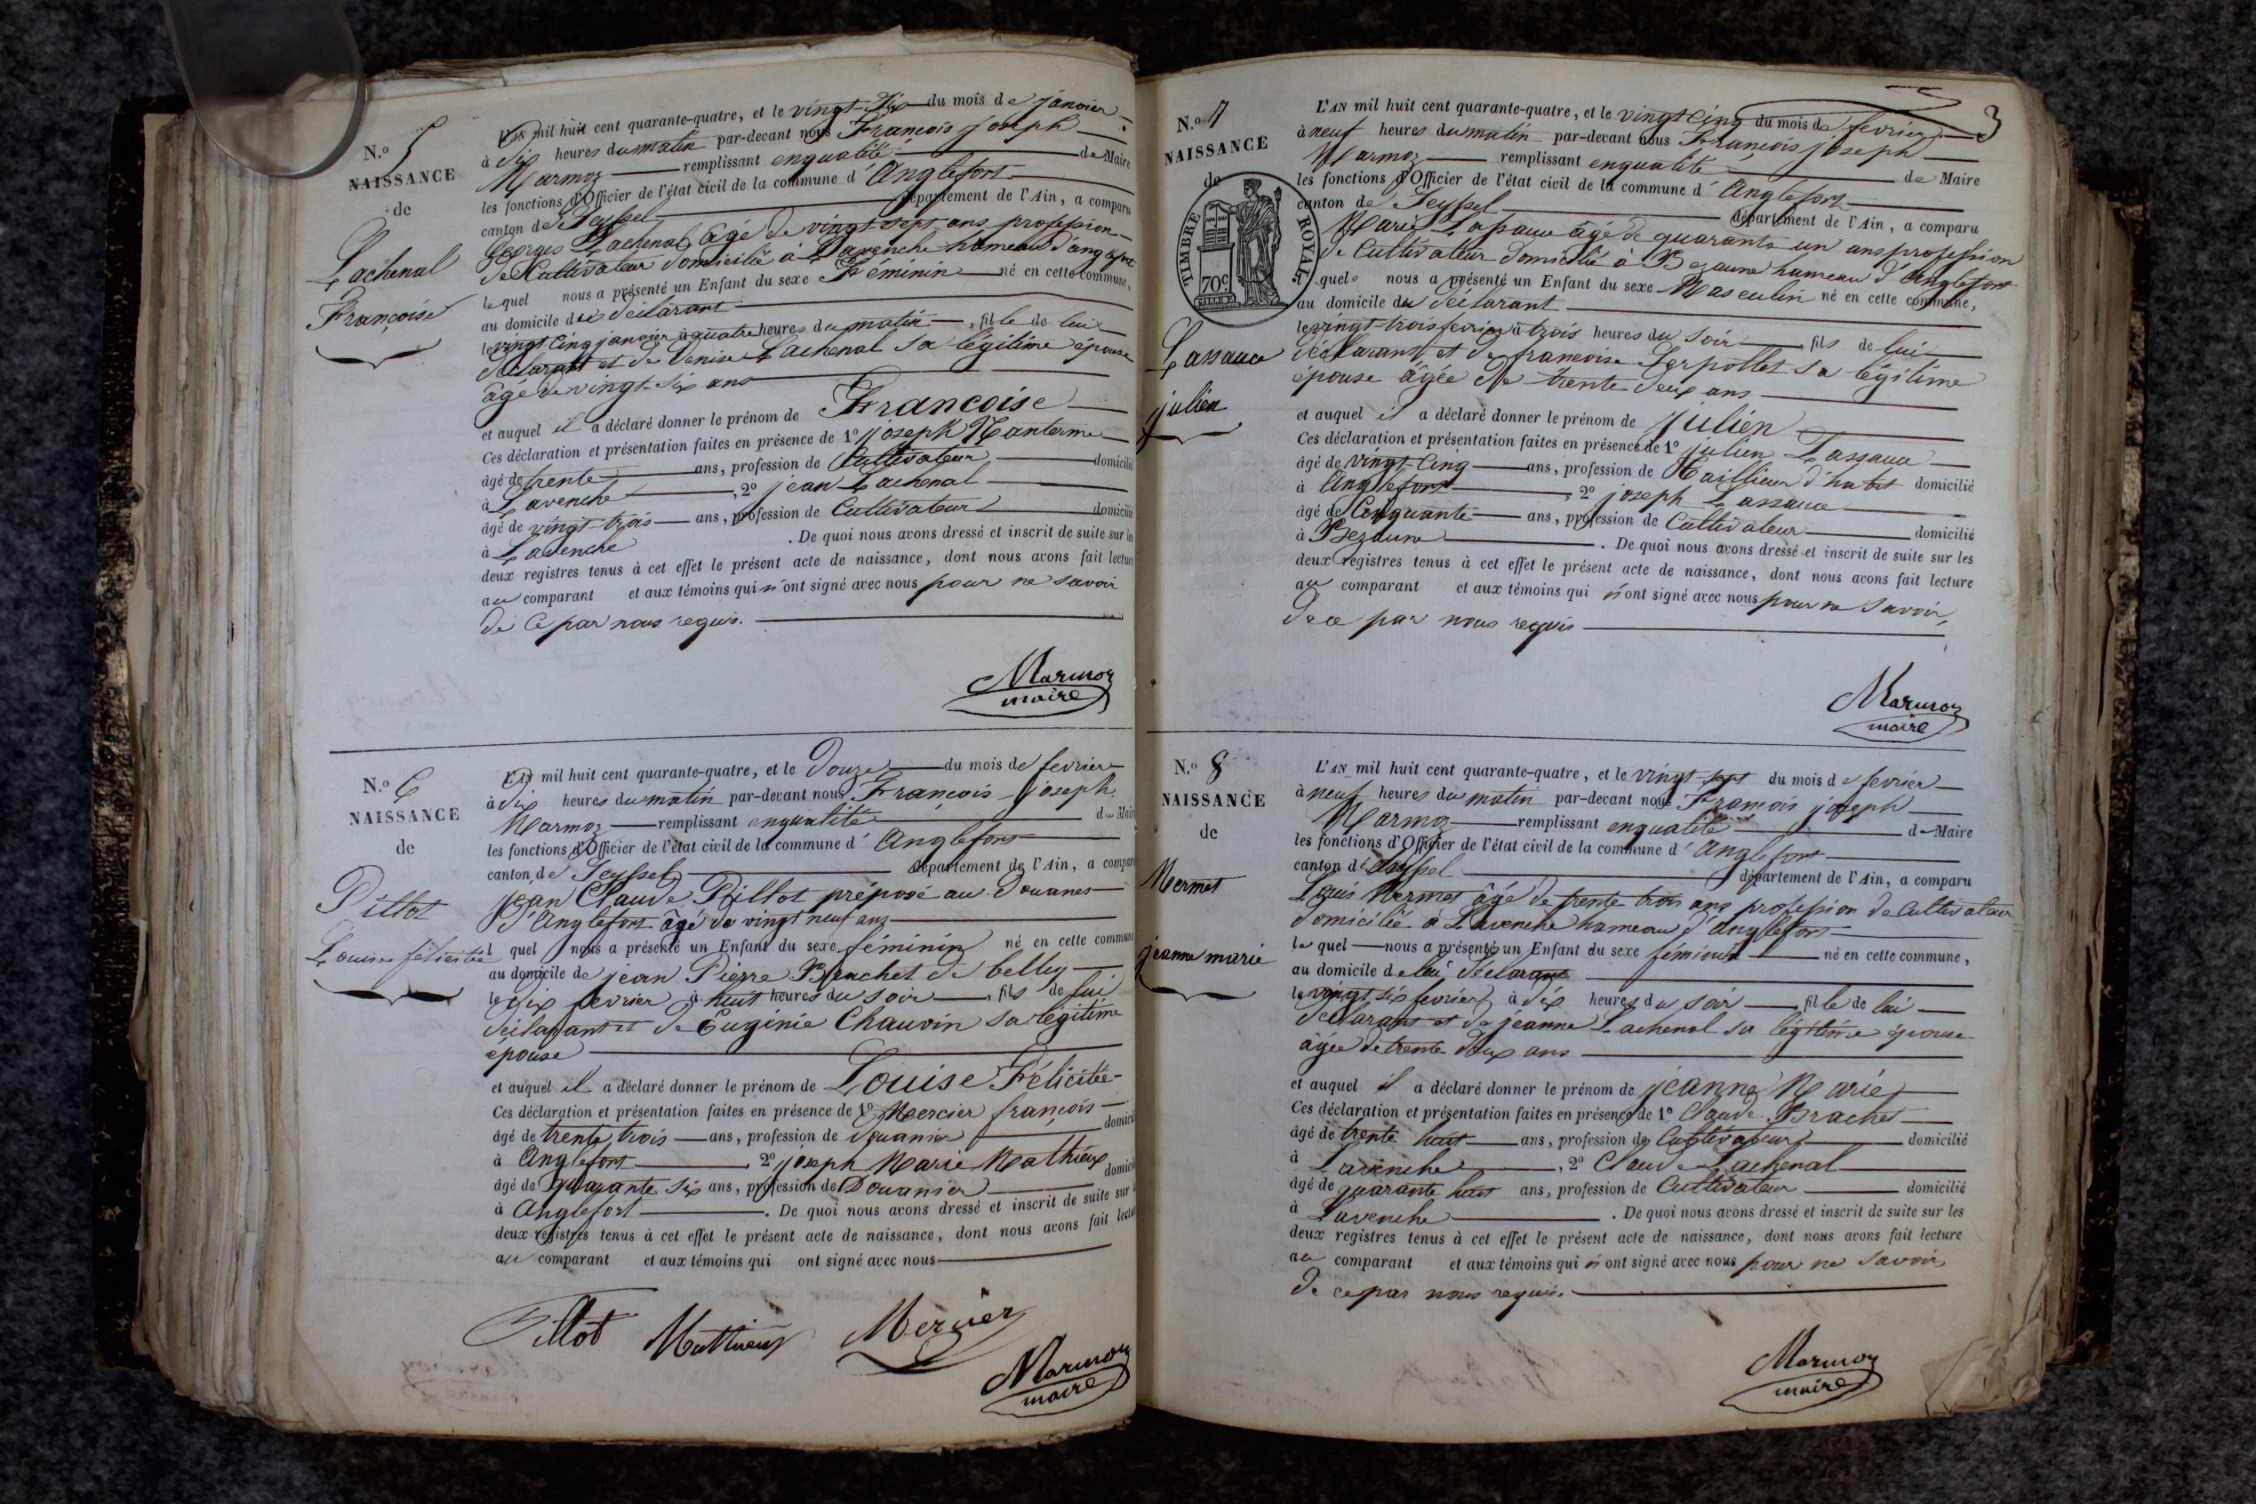 N.o 5
NAISSANCE
de
Lachenal
Françoise
L'AN mil huit cent quarante-quatre, et le vingt-six du mois de janvier
à dix heures du matin par-devant nous François joseph
Marmoz remplissant enqualité de Maire
les fonctions d'Officier de l'état civil de la commune d' Anglefort
canton de Seyssel département de l'Ain, a comparu
Georges Lachenal âgé de vingt-sept ans profession
de Cultivateur domicilié à Lavenche hameau d'anglefort
lequel nous a présenté un Enfant du sexe Féminin né en cette commune,
au domicile du déclarant
le vingt cinq janvier à quatre heures du matin, fille de lui
déclarant et de Denise Lachenal sa légitime épouse
âgé de vingt-six ans
et auquel il a déclaré donner le prénom de Francoise
Ces déclaration et présentation faites en présence de 1º joseph Nanterme
âgé de trente ans, profession de Cultivateur domicilié
à Lavenche, 2º jean Lachenal
âgé de vingt-trois ans, profession de Cultivateur domicilié
à Lavenche. De quoi nous avons dressé et inscrit de suite sur les
deux registres tenus à cet effet le présent acte de naissance, dont nous avons fait lecture
au comparant et aux témoins qui n'ont signé avec nous pour ne savoir
de ce par nous requis.
Marmoz
maire
N.o 6
NAISSANCE
de
Pillot
Louise félicitée
L'AN mil huit cent quarante-quatre, et le Douze du mois de fevrier
à dix heures du matin par-devant nous François joseph
Marmoz remplissant enqualité de Maire
les fonctions d'Officier de l'état civil de la commune d' Anglefort
canton de Seyssel département de l'Ain, a comparu
jean Claude Pillot préposé au douanes
d'Anglefort âgé de vingt neuf ans
lequel nous a présenté un Enfant du sexe féminin né en cette commune
au domicile de jean Pierre Brachet de belley
le dix fevrier à huit heures du soir, fils de lui
déclarant et de Euginie Chauvin sa légitime
épouse
et auquel il a déclaré donner le prénom de Louise Félicitée
Ces déclaration et présentation faites en présence de 1º Mercier françois
âgé de trente trois ans, profession de douanier domicilié
à Anglefort, 2º joseph Marie Mathieux
âgé de quarante six ans, profession de Douanier domicilié
à Anglefort. De quoi nous avons dressé et inscrit de suite sur
deux registres tenus à cet effet le présent acte de naissance, dont nous avons fait lecture
au comparant et aux témoins qui ont signé avec nous
Pillot Mathieux Mercier
Marmoz
maire
3
N.o 7
NAISSANCE
de
TIMBRE ROYAL
70c
Lassauce
julien
L'AN mil huit cent quarante-quatre, et le vingt cinq du mois de fevrier
à neuf heures du matin par-devant nous François joseph
Marmoz remplissant enqualité de Maire
les fonctions d'Officier de l'état civil de la commune d' Anglefort
canton de Seyssel département de l'Ain, a comparu
Marie Lapauce âgé de quarante un ans profession
de Cultivateur domicilié à Bezaune hameau d'Anglefort
lequel nous a présenté un Enfant du sexe Masculin né en cette commune,
au domicile du déclarant
le vingt-trois fevrier à trois heures du soir, fils de lui
déclarant et de francoise Serpollet sa légitime
épouse âgée de trente deux ans
et auquel il a déclaré donner le prénom de Julien
Ces déclaration et présentation faites en présence de 1º julien Lassauce
âgé de vingt-cinq ans, profession de Taillieur d'habit domicilié
à Anglefort, 2º joseph Lassauce
âgé de Cinquante ans, profession de Cultivateur domicilié
à Bezaune. De quoi nous avons dressé et inscrit de suite sur les
deux registres tenus à cet effet le présent acte de naissance, dont nous avons fait lecture
au comparant et aux témoins qui n'ont signé avec nous pour ne savoir,
de ce par nous requis
Marmoz
maire
N.o 8
NAISSANCE
de
Mermet
jeanne marie
L'AN mil huit cent quarante-quatre, et le vingt-sept du mois de fevrier
à neuf heures du matin par-devant nous François joseph
Marmoz remplissant enqualité de Maire
les fonctions d'Officier de l'état civil de la commune d' Anglefort
canton de Seyssel département de l'Ain, a comparu
Louis Mermet âgé de trente trois ans profession de Cultivateur
domicilié à Lavenche hameau d'Anglefort
lequel nous a présenté un Enfant du sexe féminin né en cette commune,
au domicile de lui déclarant
le vingt six fevrier à dix heures du soir, fille de lui
déclarant et de jeanne Lachenal sa légitime épouse
âgée de trente deux ans
et auquel il a déclaré donner le prénom de jeanne Marie
Ces déclaration et présentation faites en présence de 1º Claude Brachet
âgé de trente huit ans, profession de Cultivateur domicilié
à Lavenche, 2º Claude Lachenal
âgé de quarante huit ans, profession de Cultivateur domicilié
à Lavenche. De quoi nous avons dressé et inscrit de suite sur les
deux registres tenus à cet effet le présent acte de naissance, dont nous avons fait lecture
au comparant et aux témoins qui n'ont signé avec nous pour ne savoir
de ce par nous requis.
Marmoz
maire